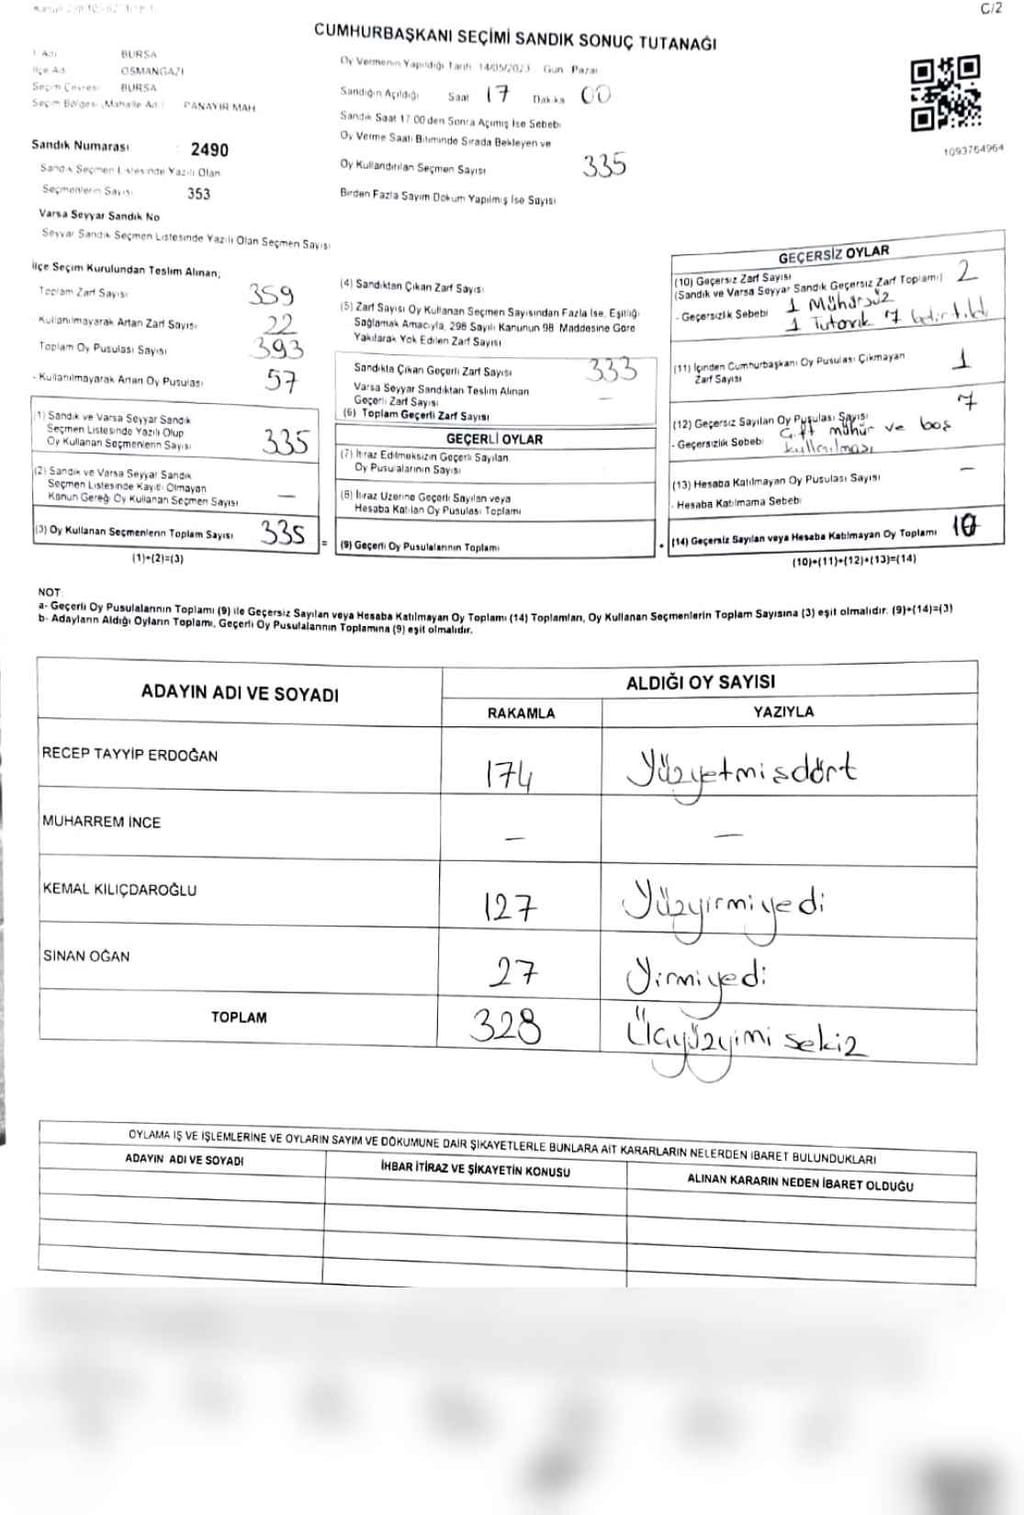 C/2
CUMHURBAŞKANI SEÇİMİ SANDIK SONUÇ TUTANAĞI
İl Adı BURSA
İlçe Adı OSMANGAZİ
Seçim Çevresi BURSA
Seçim Bölgesi (Mahalle Adı) PANAYIR MAH
Sandık Numarası : 2490
Sandık Seçmen Listesinde Yazılı Olan
Seçmenlerin Sayısı 353
Varsa Seyyar Sandık No
Seyyar Sandık Seçmen Listesinde Yazılı Olan Seçmen Sayısı
Oy Vermenin Yapıldığı Tarih 14/05/2023 Gün Pazar
Sandığın Açıldığı Saat 17 Dakika 00
Sandık Saat 17.00 den Sonra Açılmış İse Sebebi
Oy Verme Saati Bitiminde Sırada Bekleyen ve
Oy Kullandırılan Seçmen Sayısı 335
Birden Fazla Sayım Döküm Yapılmış İse Sayısı
1093764964
İlçe Seçim Kurulundan Teslim Alınan;
Toplam Zarf Sayısı 359
Kullanılmayarak Artan Zarf Sayısı 22
Toplam Oy Pusulası Sayısı 393
- Kullanılmayarak Artan Oy Pusulası 57
(1) Sandık ve Varsa Seyyar Sandık
Seçmen Listesinde Yazılı Olup
Oy Kullanan Seçmenlerin Sayısı 335
(2) Sandık ve Varsa Seyyar Sandık
Seçmen Listesinde Kayıtlı Olmayan
Kanun Gereği Oy Kullanan Seçmen Sayısı —
(3) Oy Kullanan Seçmenlerin Toplam Sayısı 335
(1)+(2)=(3)
(4) Sandıktan Çıkan Zarf Sayısı
(5) Zarf Sayısı Oy Kullanan Seçmen Sayısından Fazla İse, Eşitliği
Sağlamak Amacıyla, 298 Sayılı Kanunun 98 Maddesine Göre
Yakılarak Yok Edilen Zarf Sayısı
Sandıkta Çıkan Geçerli Zarf Sayısı 333
Varsa Seyyar Sandıktan Teslim Alınan
Geçerli Zarf Sayısı —
(6) Toplam Geçerli Zarf Sayısı
GEÇERLİ OYLAR
(7) İtiraz Edilmeksizin Geçerli Sayılan
Oy Pusulalarının Sayısı
(8) İtiraz Üzerine Geçerli Sayılan veya
Hesaba Katılan Oy Pusulası Toplamı
= (9) Geçerli Oy Pusulalarının Toplamı
GEÇERSİZ OYLAR
(10) Geçersiz Zarf Sayısı 2
(Sandık ve Varsa Seyyar Sandık Geçersiz Zarf Toplamı)
- Geçersizlik Sebebi 1 Mühürsüz
1 Tutanık
(11) İçinden Cumhurbaşkanı Oy Pusulası Çıkmayan
Zarf Sayısı 1
(12) Geçersiz Sayılan Oy Pusulası Sayısı 7
- Geçersizlik Sebebi çift mühür ve boş
kullanılması
(13) Hesaba Katılmayan Oy Pusulası Sayısı —
- Hesaba Katılmama Sebebi
+ (14) Geçersiz Sayılan veya Hesaba Katılmayan Oy Toplamı 10
(10)+(11)+(12)+(13)=(14)
NOT
a- Geçerli Oy Pusulalarının Toplamı (9) ile Geçersiz Sayılan veya Hesaba Katılmayan Oy Toplamı (14) Toplamları, Oy Kullanan Seçmenlerin Toplam Sayısına (3) eşit olmalıdır. (9)+(14)=(3)
b- Adayların Aldığı Oyların Toplamı, Geçerli Oy Pusulalarının Toplamına (9) eşit olmalıdır.
ADAYIN ADI VE SOYADI ALDIĞI OY SAYISI
RAKAMLA YAZIYLA
RECEP TAYYİP ERDOĞAN 174 Yüzyetmişdört
MUHARREM İNCE — —
KEMAL KILIÇDAROĞLU 127 Yüzyirmiyedi
SİNAN OĞAN 27 Yirmiyedi
TOPLAM 328 Üçyüzyimi sekiz
OYLAMA İŞ VE İŞLEMLERİNE VE OYLARIN SAYIM VE DÖKÜMÜNE DAİR ŞİKAYETLERLE BUNLARA AİT KARARLARIN NELERDEN İBARET BULUNDUKLARI
ADAYIN ADI VE SOYADI İHBAR İTİRAZ VE ŞİKAYETİN KONUSU ALINAN KARARIN NEDEN İBARET OLDUĞU